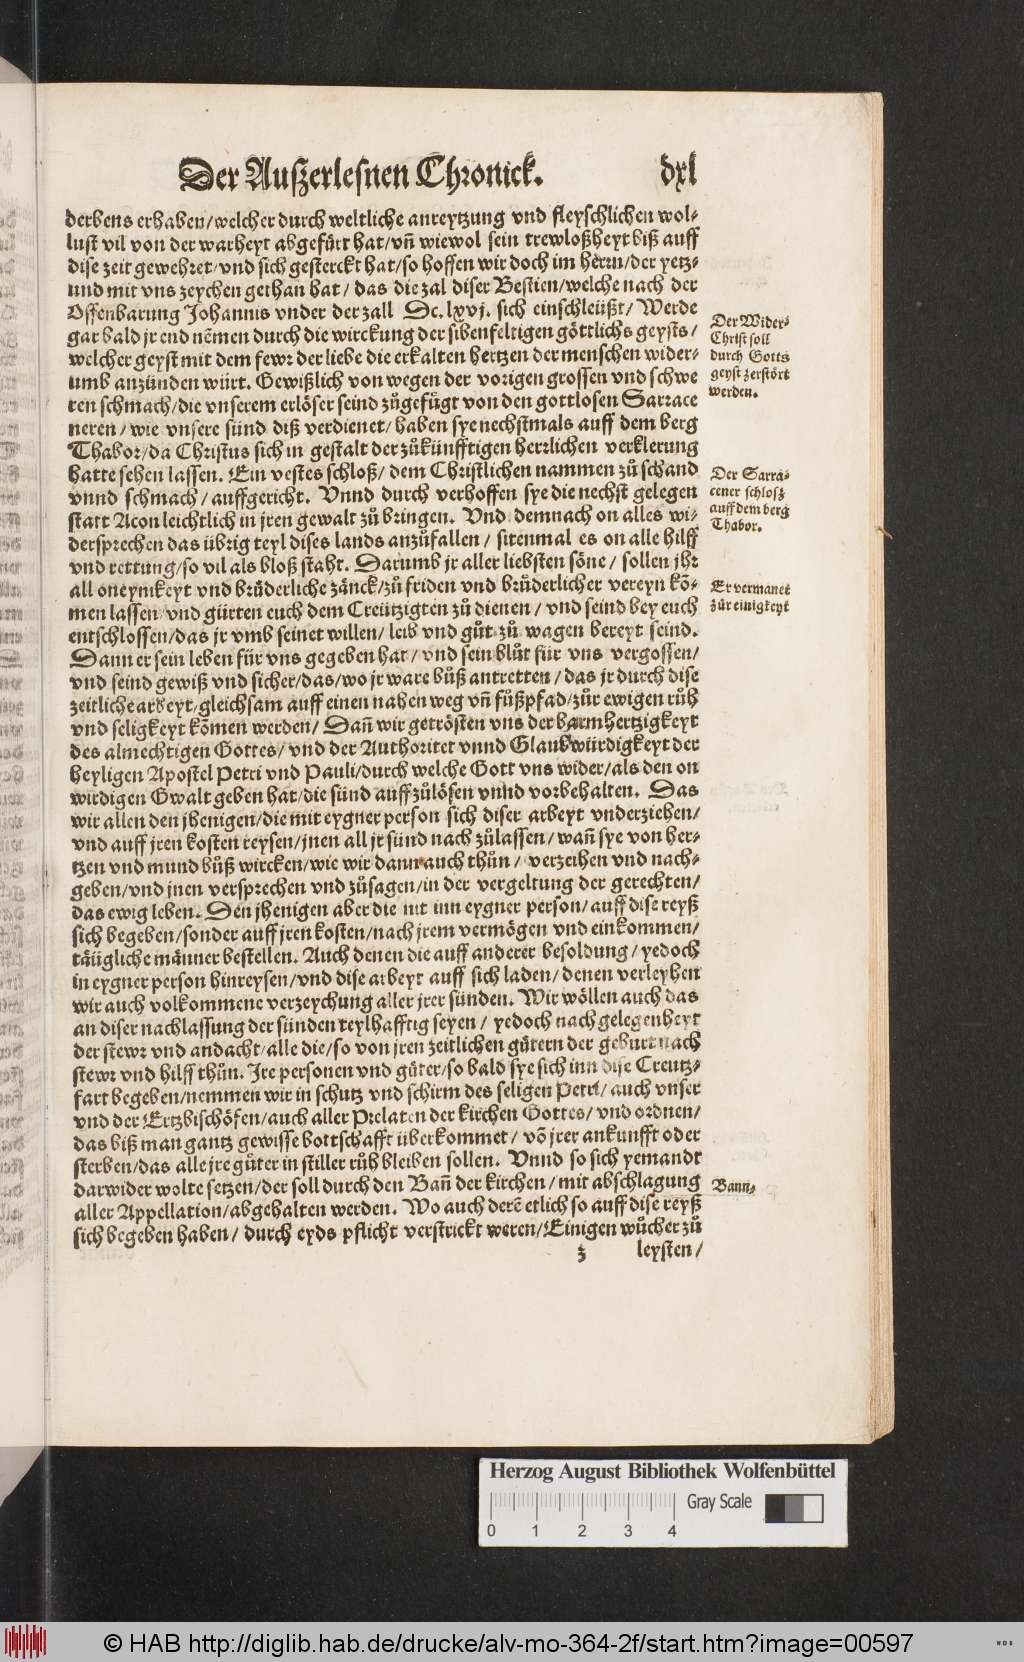 Der Außerlesnen Chronick. dxl
derbens erhaben/welcher durch weltliche anreytzung vnd fleyschlichen wol-
lust vil von der warheyt abgefürt hat/vñ wiewol sein trewloßheyt biß auff
dise zeit gewehret/vnd sich gesterckt hat/so hoffen wir doch im herrn/der yetz-
und mit vns zeychen gethan hat/ das die zal diser Bestien/welche nach der
Offenbarung Johannis vnder der zall Dc. lxvj. sich einschleüßt/ Werde
gar bald jr end nemen durch die wirckung der sibenfeltigen göttlichs geysts/
welcher geyst mit dem fewr der liebe die erkalten hertzen der menschen wider-
umb anzünden würt. Gewißlich von wegen der vorigen grossen vnd schwe
ren schmach/die vnserem erlöser seind zůgefůgt von den gottlosen Sarrace
neren/ wie vnsere sünd diß verdienet/ haben sye nechstmals auff dem berg
Thabor/da Christus sich in gestalt der zůkünfftigen herrlichen verklerung
hatte sehen lassen. Ein vestes schloß/ dem Christlichen nammen zů schand
vnnd schmach/ auffgericht. Vnnd durch verhoffen sye die nechst gelegen
statt Acon leichtlich in jren gewalt zů bringen. Vnd demnach on alles wi-
dersprechen das übrig teyl dises lands anzůfallen/ sitenmal es on alle hilff
vnd rettung/so vil als bloß staht. Darumb jr aller liebsten söne/ sollen jhr
all oneynikeyt vnd brůderliche zänck/zů friden vnd brůderlicher vereyn kõ-
men lassen/vnd gürten euch dem Creützigten zů dienen/ vnd seind bey euch
entschlossen/das jr vmb seinet willen/ leib vnd gůt zů wagen bereyt seind.
Dann er sein leben für vns gegeben hat/ vnd sein blůt für vns vergossen/
vnd seind gewiß vnd sicher/das/wo jr ware bůß antretten/ das jr durch dise
zeitliche arbeyt/gleichsam auff einen nahen weg vñ fůßpfad/zůr ewigen růh
vnd seligkeyt kõmen werden/ Dañ wir getrösten vns der barmhertzigkeyt
des almechtigen Gottes/ vnd der Authoritet vnnd Glaubwürdigkeyt der
heyligen Apostel Petri vnd Pauli/durch welche Gott vns wider/als den on
wirdigen Gwalt geben hat/die sünd auffzůlösen vnnd vorbehalten. Das
wir allen den jhenigen/die mit eygner person sich diser arbeyt vnderziehen/
vnd auff jren kosten reysen/jnen all jr sünd nach zůlassen/wañ sye von her-
tzen vnd mund bůß wircken/wie wir dann auch thůn/ verzeihen vnd nach-
geben/vnd jnen versprechen vnd zůsagen/in der vergeltung der gerechten/
das ewig leben. Den jhenigen aber die nit inn eygner person/auff dise reyß
sich begeben/sonder auff jren kosten/nach jrem vermögen vnd einkommen/
täügliche männer bestellen. Auch denen die auff anderer besoldung/ yedoch
in eygner person hinreysen/vnd dise arbeyt auff sich laden/ denen verleyhen
wir auch volkommene verzeychung aller jrer sünden. Wir wöllen auch das
an diser nachlassung der sünden teylhafftig seyen/ yedoch nach gelegenheyt
der stewr vnd andacht/alle die/so von jren zeitlichen gütern der geburt nach
stewr vnd hilff thůn. Ire personen vnd güter/so bald sye sich inn dise Creutz-
fart begeben/nemmen wir in schutz vnd schirm des seligen Petri/ auch vnser
vnd der Ertzbischöfen/auch aller Prelaten der kirchen Gottes/ vnd ordnen/
das biß man gantz gewisse bottschafft überkommet/ võ jrer ankunfft oder
sterben/das alle jre güter in stiller růh bleiben sollen. Vnnd so sich yemandt
darwider wolte setzen/der soll durch den Bañ der kirchen/ mit abschlagung
aller Appellation/abgehalten werden. Wo auch derẽ etlich so auff dise reyß
sich begeben haben/ durch eyds pflicht verstrickt weren/Einigen wůcher zů
z leysten/
Der Wider-
Christ soll
durch Gotts
geyst zerstört
werden.
Der Sarra-
cener schlosz
auff dem berg
Thabor.
Er vermanet
zůr einigkeyt
Bann.
Herzog August Bibliothek Wolfenbüttel
Gray Scale
0 1 2 3 4
© HAB http://diglib.hab.de/drucke/alv-mo-364-2f/start.htm?image=00597